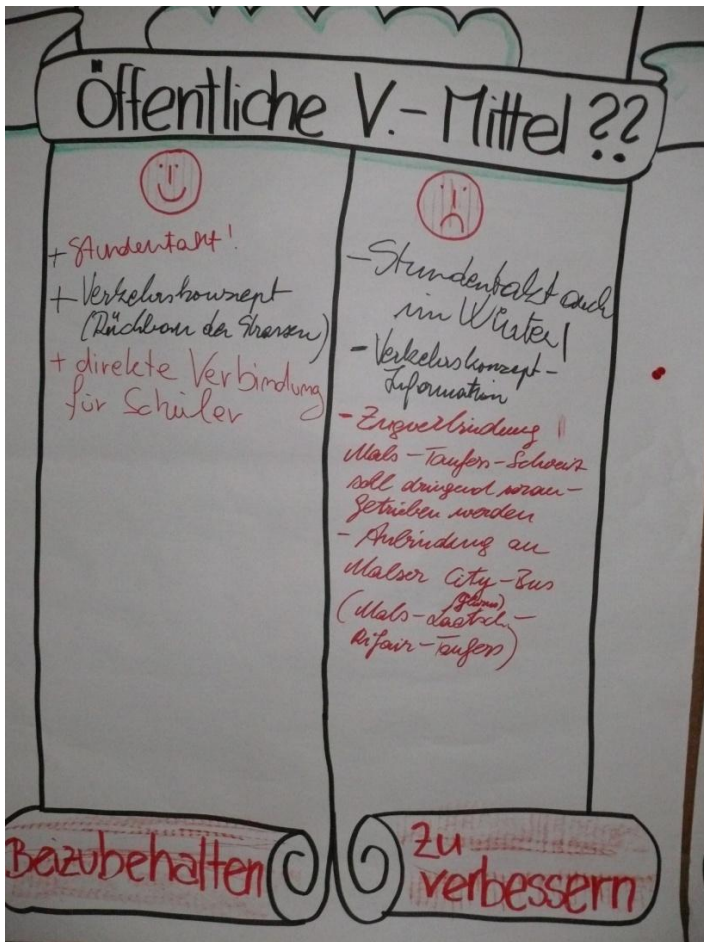 Öffentliche V.-Mittel ??
+ Stundentakt!
+ Verkehrskonzept
(Rückbau der Strassen)
+ direkte Verbindung
für Schüler
- Stundentakt auch
im Winter!
- Verkehrskonzept-
Information
- Zugverbindung !
Mals-Taufers-Schweiz
soll dringend voran-
getrieben werden
- Anbindung an
Malser City-Bus
(Glurns)
(Mals-Laatsch-
Rifair-Taufers)
Beizubehalten
Zu
verbessern